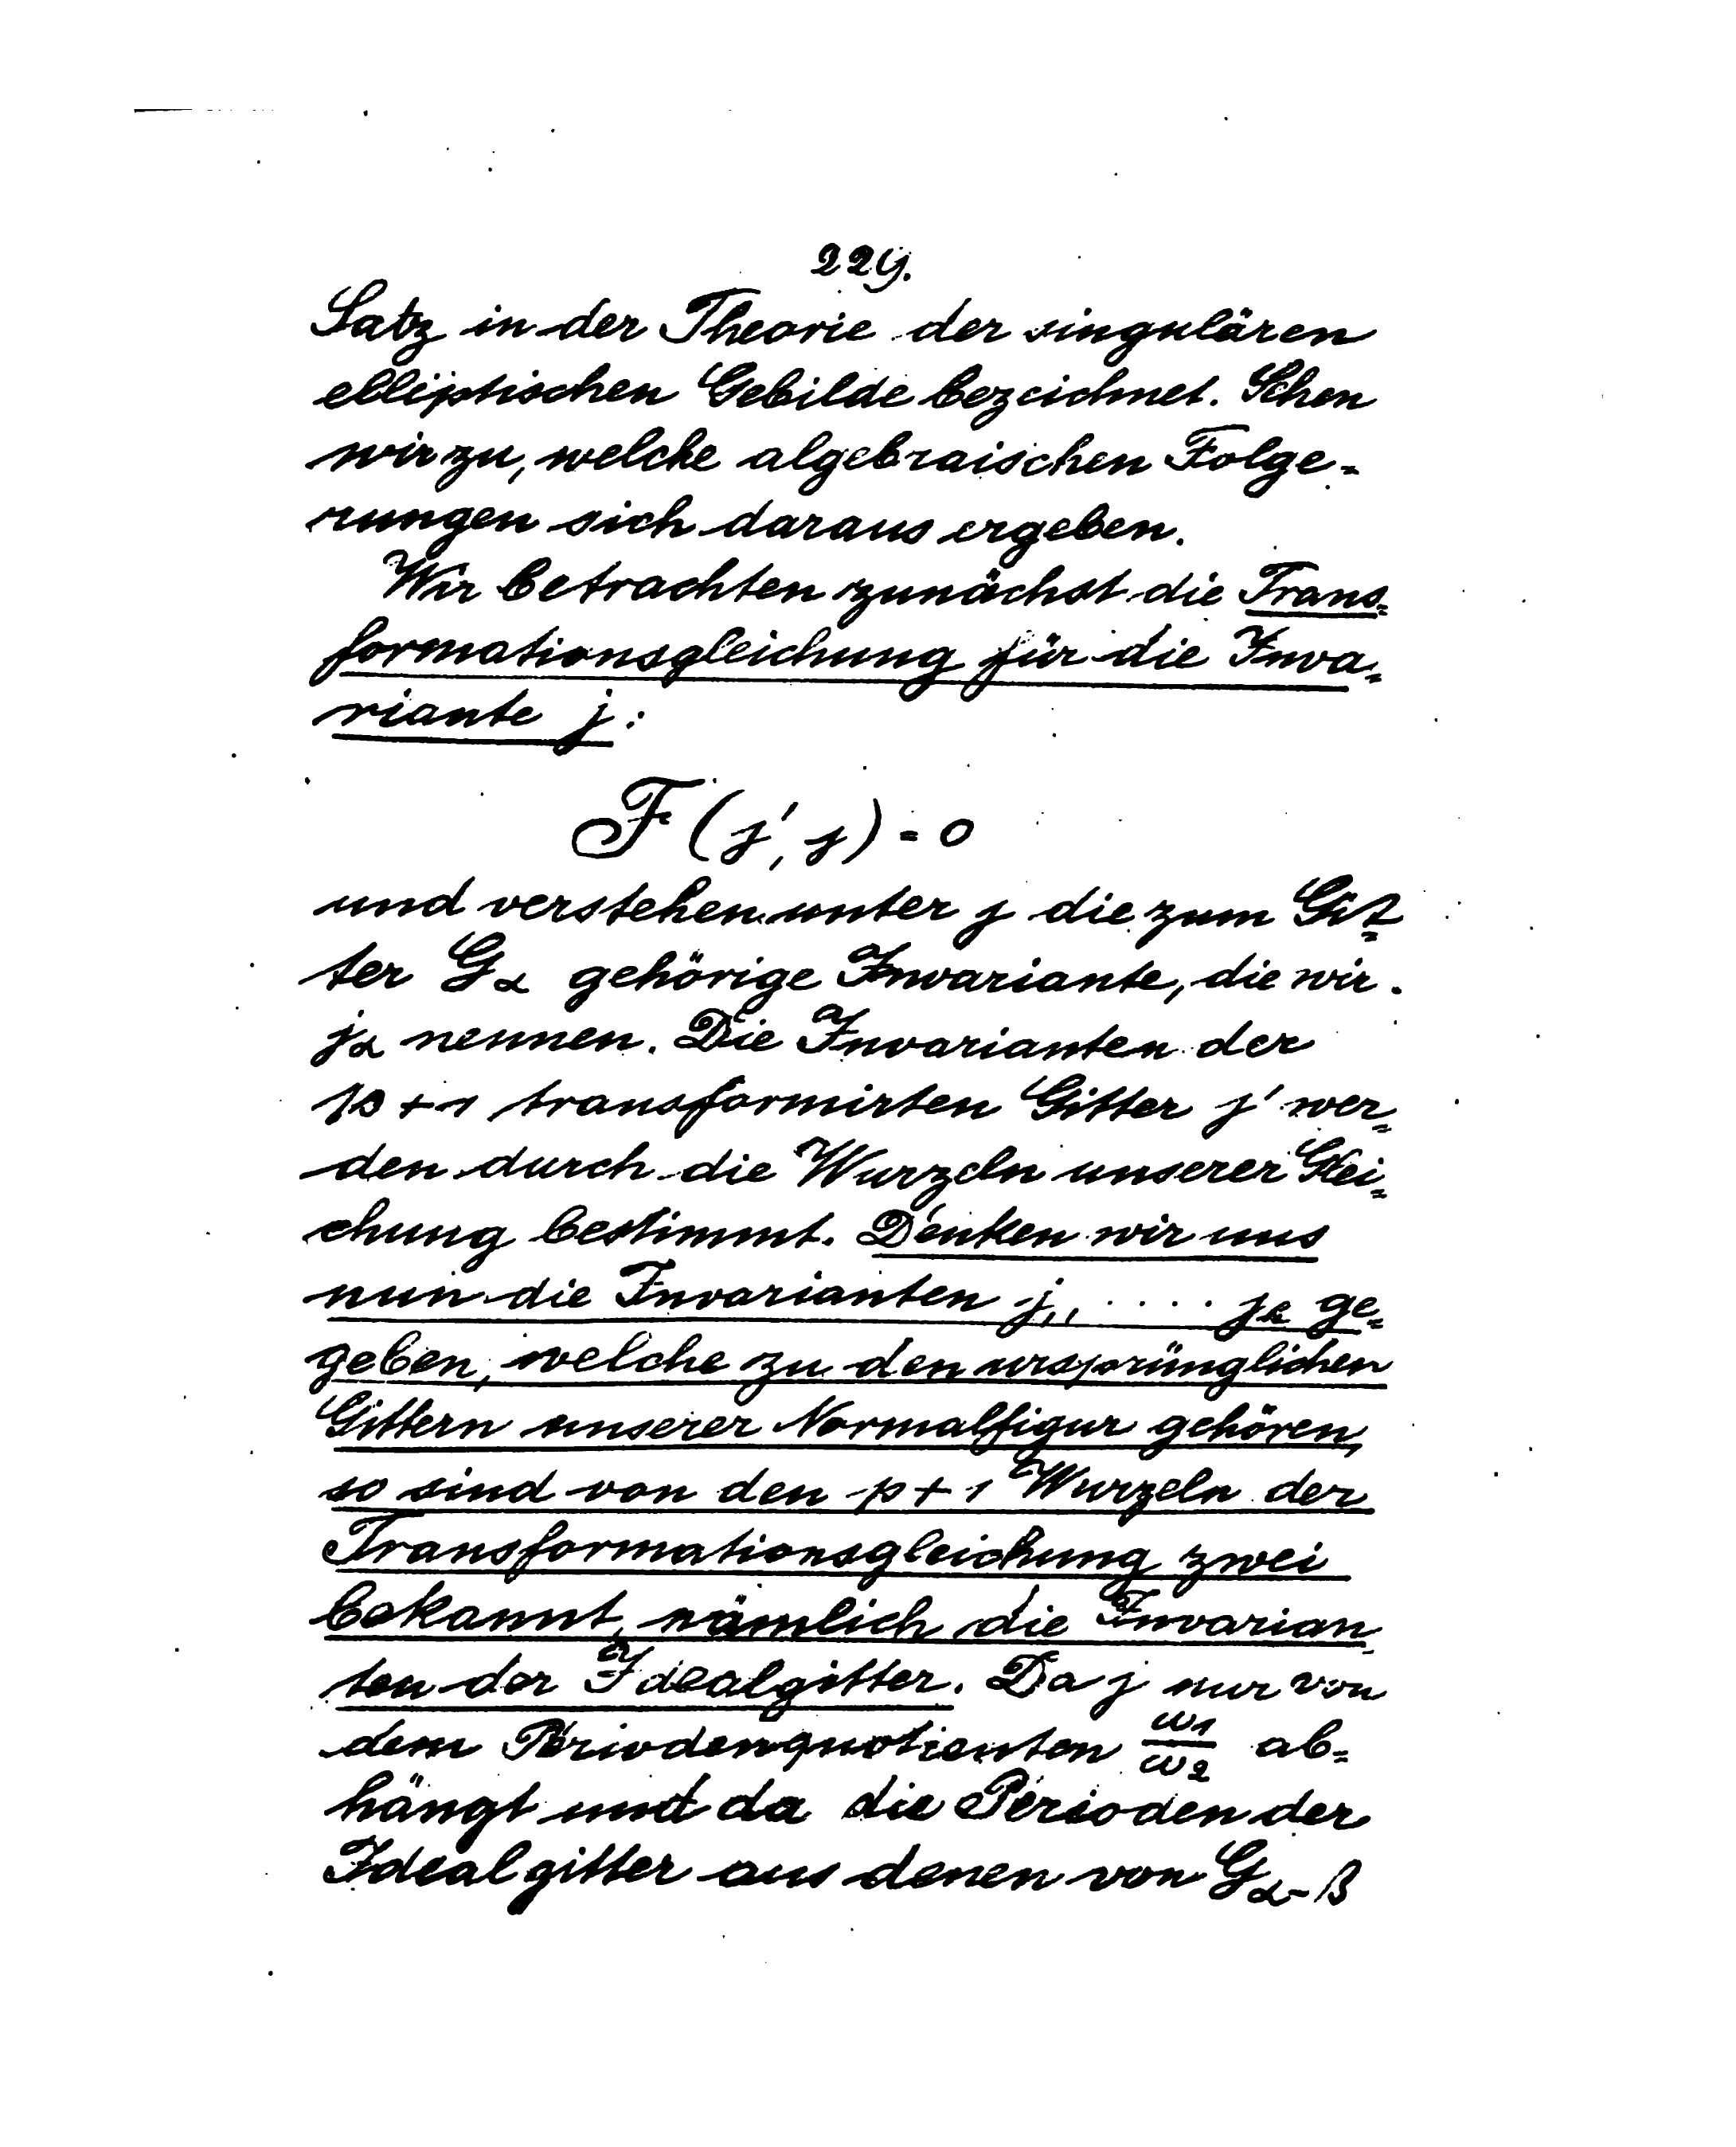 229.
Satz in der Theorie der singulären
elliptischen Gebilde bezeichnet. Sehen
wir zu, welche algebraischen Folge=
rungen sich daraus ergeben.
Wir betrachten zunächst die Trans=
formationsgleichung für die Inva=
riante j:
F (j', j) = 0
und verstehen unter j die zum Git=
ter Gα gehörige Invariante, die wir
jα nennen. Die Invarianten der
p + 1 transformirten Gitter j' wer=
den durch die Wurzeln unserer Glei=
chung bestimmt. Denken wir uns
nun die Invarianten j1, .... jh ge=
geben, welche zu den ursprünglichen
Gittern unserer Normalfigur gehören,
so sind von den p + 1 Wurzeln der
Transformationsgleichung zwei
bekannt, nämlich die Invarian=
ten der Idealgitter. Da j nur von
dem Periodenquotienten ω1/ω2 ab=
hängt und da die Perioden der
Idealgitter aus denen von Gα-β